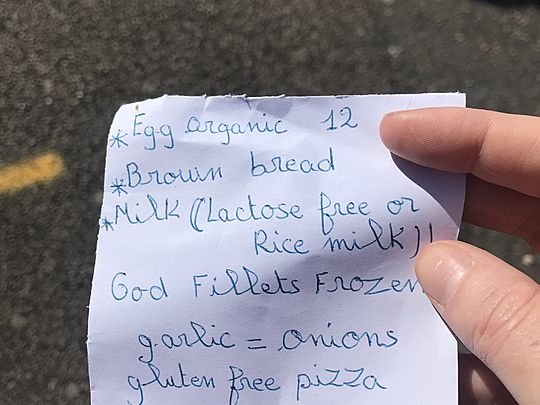 *Egg organic 12
*Brown bread
*Milk (Lactose free or
Rice milk)!
God Fillets Frozen
garlic = onions
gluten free pizza